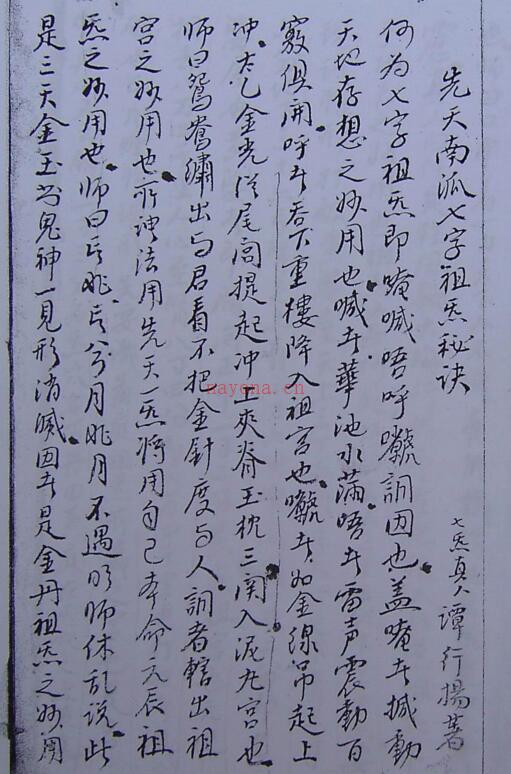 先天南派七字祖炁秘诀
七炁真人譚行揚著
何为七字祖炁即唵喊唔呼囐訓因也盖唵者撼動
天地存想之妙用也喊者華池水滿唔者雷声震動百
竅俱開呼者吞下重樓降入祖宫也囐者如金線吊起上
冲太乙金光従尾闾提起冲上夾脊玉枕三関入泥丸宫也
师曰鴛鴦繡出与君看不把金針度与人訓者轄出祖
宫之妙用也所謂法用先天一炁將用自己本命元辰祖
炁之妙用也师曰兮月非月不遇明师休乱说此
是三天金玉鬼神一見形消滅因者是金丹祖炁之妙用
nayona.cn